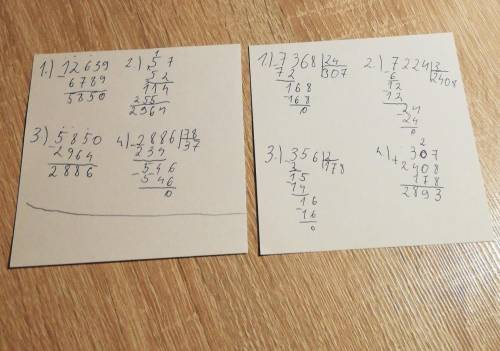 1.) -12639
6789
5850
2.) 57
52
114
285
2964
3.) -5850
2964
2886
4.) -2886|78
234 37
-546
546
0
1.) -7368|24
72 307
168
-168
0
2.) -7224|3
6 2408
12
12
-24
24
0
3.) -356|2
2 178
15
-14
16
-16
0
4.) +307
2408
178
2893